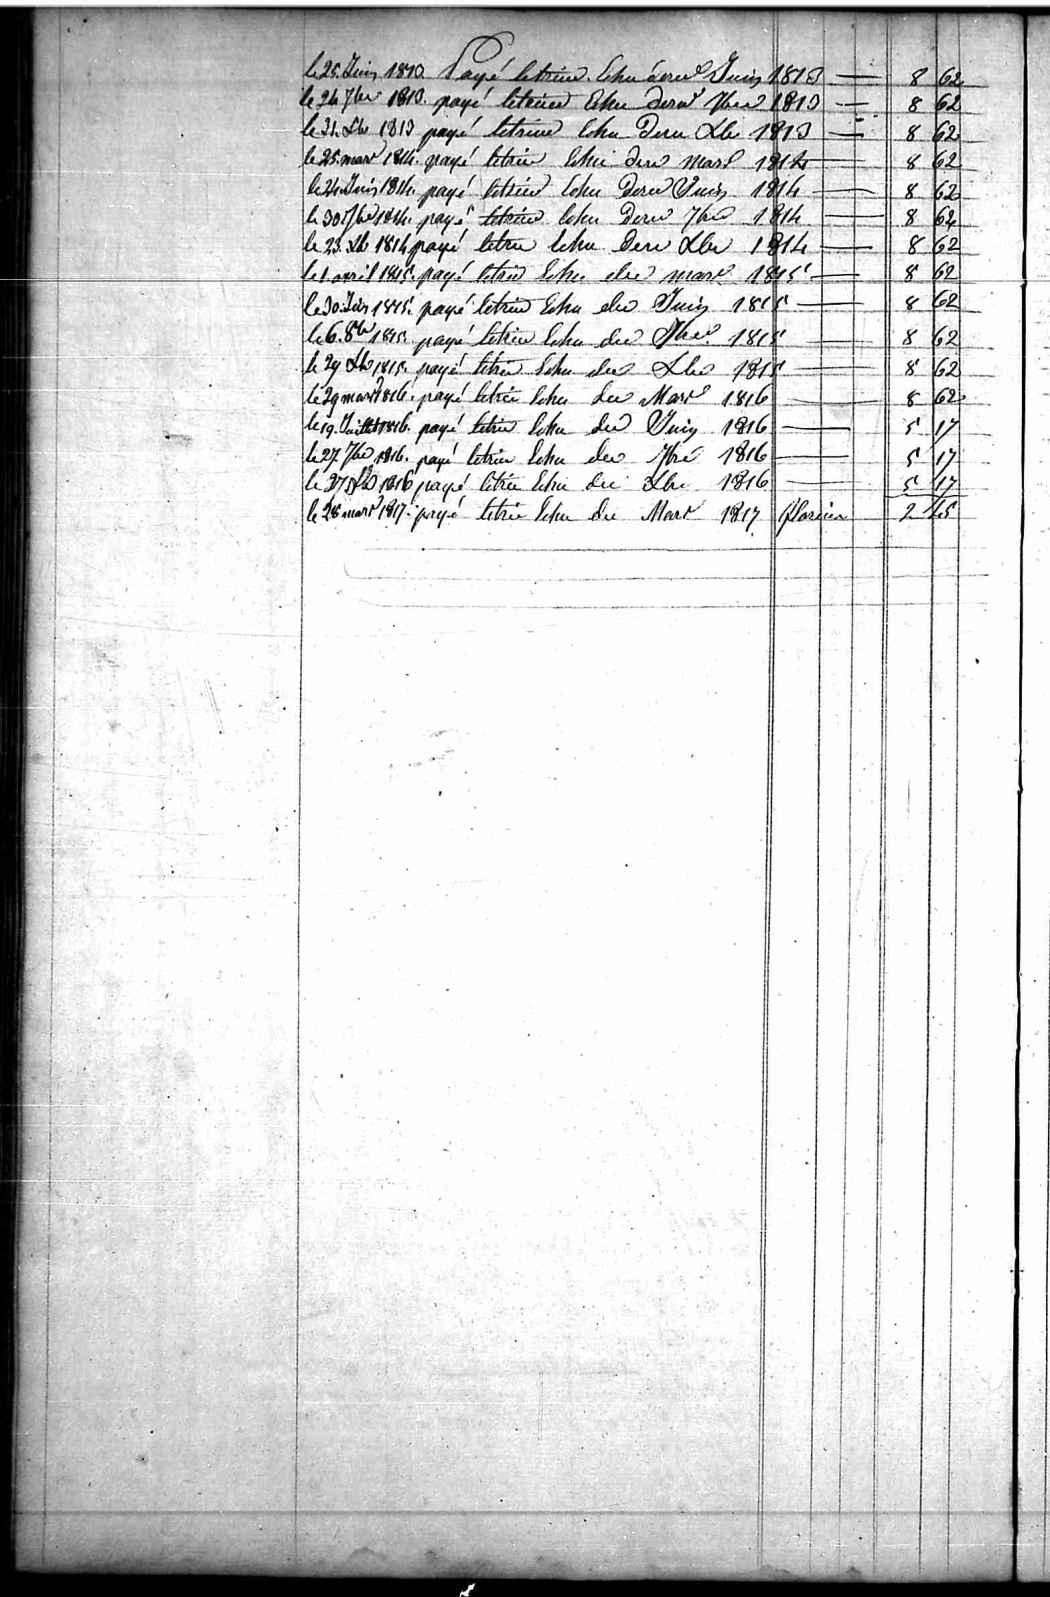 le 25. Juin 1813. Payé letrim. Echu dern Juin 1813 — 8 62
le 24 7bre 1813. payé letrim Echu dern 7bre 1813 — 8 62
le 31. Xbr 1813 payé letrim Echu Dern Xbr 1813 — 8 62
le 25. mars 1814. payé letrim Echu dern mars 1814 — 8 62
le 24. Juin 1814. payé letrim Echu Dern Juin 1814 — 8 62
le 30. 7bre 1814. payé letrim Echu Dern 7bre 1814 — 8 62
le 23. Xbr 1814 payé letrim Echu Dern Xbr 1814 — 8 62
le 1 avril 1815. payé letrim Echu du mars 1815 — 8 62
le 30. Juin 1815. payé letrim Echu du Juin 1815 — 8 62
le 6. 8bre 1815. payé letrim Echu du 7bre. 1815 — 8 62
le 29 Xbr 1815. payé letrim Echu du Xbr 1815 — 8 62
le 29 mars 1816. payé letrim Echu du Mars 1816 — 8 62
le 19. Juillet 1816. payé letrim Echu du Juin 1816 — 5 17
le 27 7bre 1816. payé letrim Echu du 7bre 1816 — 5 17
le 27 Xbr 1816 payé letrim Echu du Xbr 1816 — 5 17
le 28 mars 1817. payé letrim Echu du Mars 1817 florins 2 45